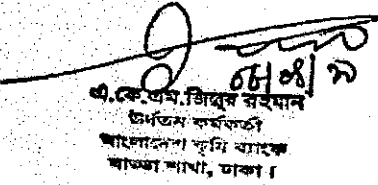 এ.কে.এম.জিল্লুর রহমান
ঊর্ধ্বতন কর্মকর্তা
বাংলাদেশ কৃষি ব্যাংক
বাড্ডা শাখা, ঢাকা।